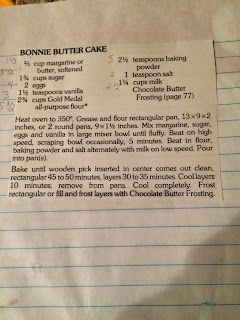 BONNIE BUTTER CAKE
⅔ cup margarine or
butter, softened
1¾ cups sugar
2 eggs
1½ teaspoons vanilla
2¾ cups Gold Medal
all-purpose flour*
2½ teaspoons baking
powder
1 teaspoon salt
1¼ cups milk
Chocolate Butter
Frosting (page 77)
Heat oven to 350°. Grease and flour rectangular pan, 13×9×2
inches, or 2 round pans, 9×1½ inches. Mix margarine, sugar,
eggs and vanilla in large mixer bowl until fluffy. Beat on high
speed, scraping bowl occasionally, 5 minutes. Beat in flour,
baking powder and salt alternately with milk on low speed. Pour
into pan(s).
Bake until wooden pick inserted in center comes out clean,
rectangular 45 to 50 minutes, layers 30 to 35 minutes. Cool layers
10 minutes; remove from pans. Cool completely. Frost
rectangular or fill and frost layers with Chocolate Butter Frosting.